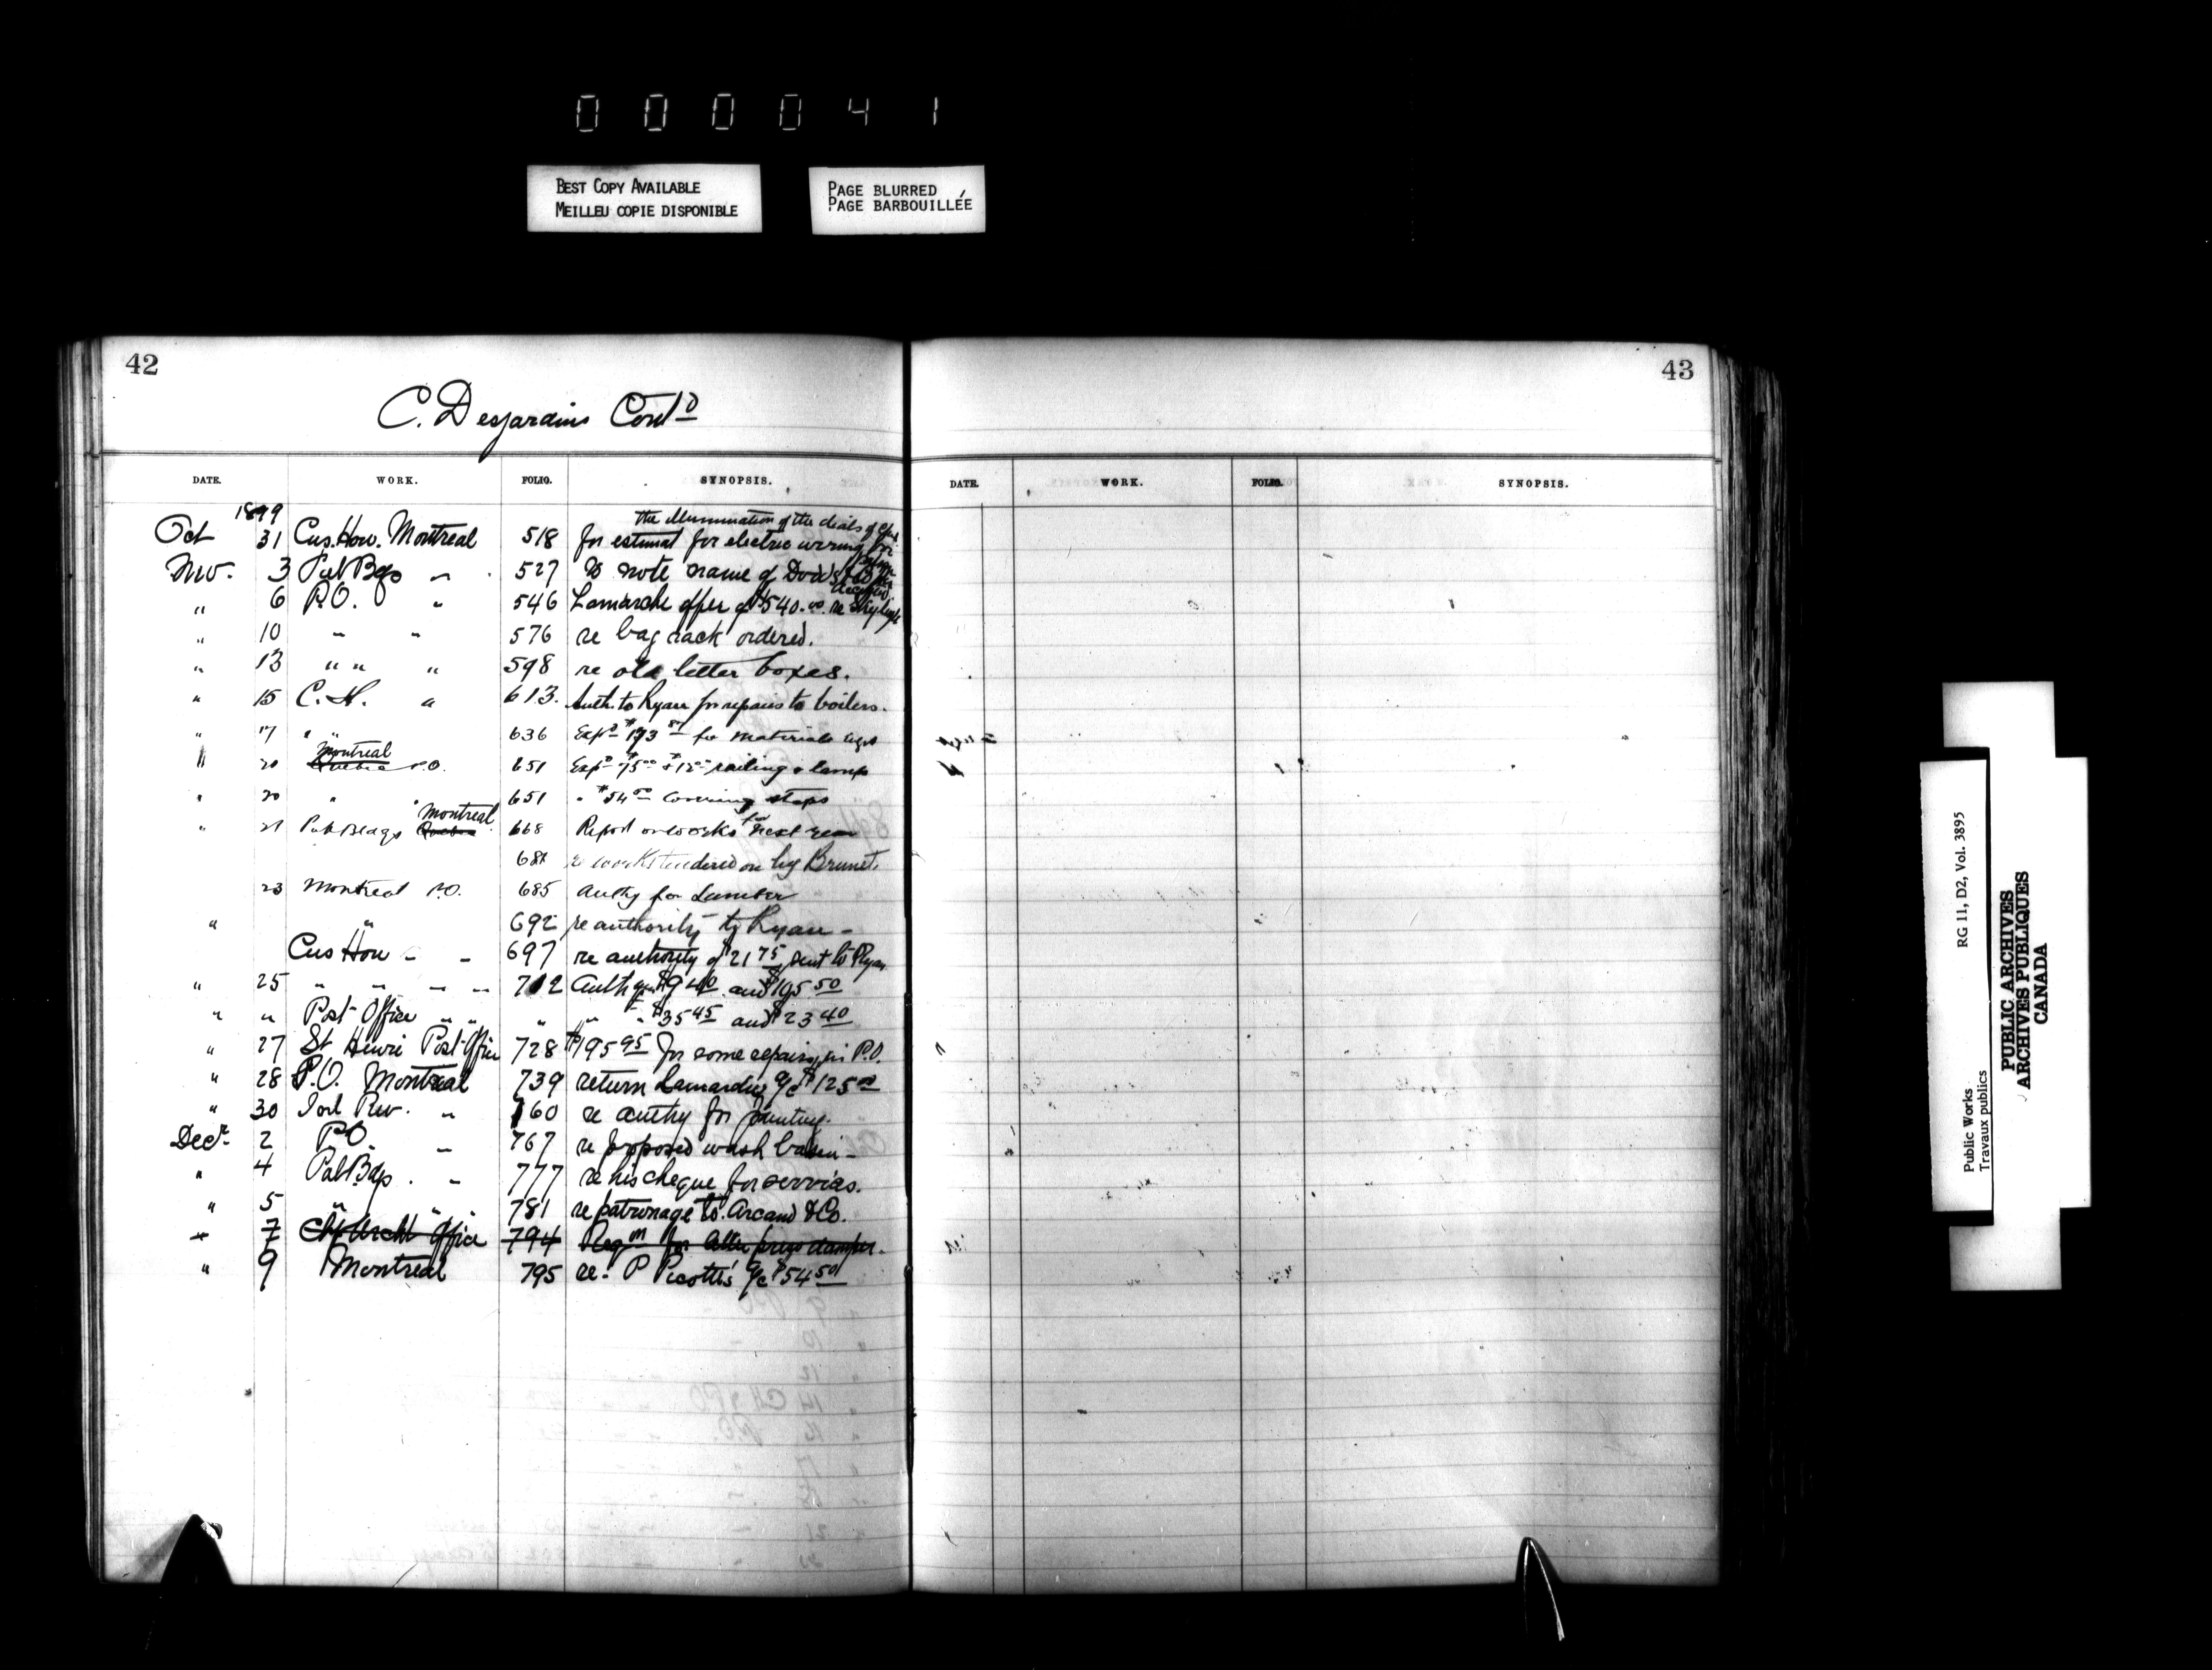 0 0 0 0 4 1
BEST COPY AVAILABLE
MEILLEU COPIE DISPONIBLE
PAGE BLURRED
PAGE BARBOUILLÉE
42
C. Desjardins Contd
DATE. WORK. FOLIO. SYNOPSIS.
1899
the illumination of the dials of
Oct 31 Cus. Hou. Montreal 518 for estimat for electric wiring for
Nov. 3 Pub Bgs " 527 to note name of
" 6 P.O. " 546 Lamarche offer of $540.00 re
" 10 " " 576 re bag rack ordered.
" 13 " " " 598 re old letter boxes.
" 15 C.H. " 613. Auth. to Ryan for repairs to boilers.
" 17 " " 636 Expre $193 for materials
Montreal
" 20 Quebec P.O. 651 railing & lamps
" 20 " " 651 " $54.00 covering steps
Montreal
" 21 Pub Bldgs Quebec 668 Report on works for next year
re works tendered on by Brunet.
23 Montreal P.O. 685 Authy for Lumber
" " 692 re authority to Ryan -
Cus Hou - - 697 re authority of $21 75 sent to Ryan
" 25 " " " " 712 and $195 50
" " Post Office " " " " " $35 45 and $23 40
" 27 St Henri Post Office 728 $195 95 for some repairs in P.O.
" 28 P.O. Montreal 739 return Lamarche a/c $125 00
" 30 Inl Rev. " 760 re authy for painting.
Decr 2 P.O. " 767 re proposed wash basin -
" 4 Pub Bdgs. " 777 re his cheque for services.
" 5 " " " 781 re patronage to Arcand & Co.
" 7 Chf Archt Office 794 Reqon for letter press damper.
" 9 Montreal 795 re. P Picotte's a/c $54 50
43
DATE. WORK. FOLIO. SYNOPSIS.
RG 11, D2, Vol. 3895
Public Works
Travaux publics
PUBLIC ARCHIVES
ARCHIVES PUBLIQUES
CANADA